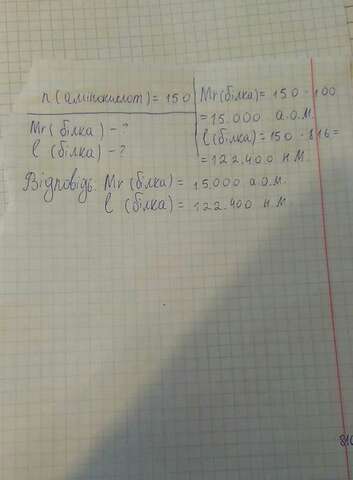 n (амінокислот) = 150
Mr (білка) - ?
l (білка) - ?
Mr (білка) = 150 · 100
= 15.000 а.о.м.
l (білка) = 150 · 816 =
= 122.400 н.м.
Відповідь. Mr (білка) = 15.000 а.о.м.
l (білка) = 122.400 н.м.